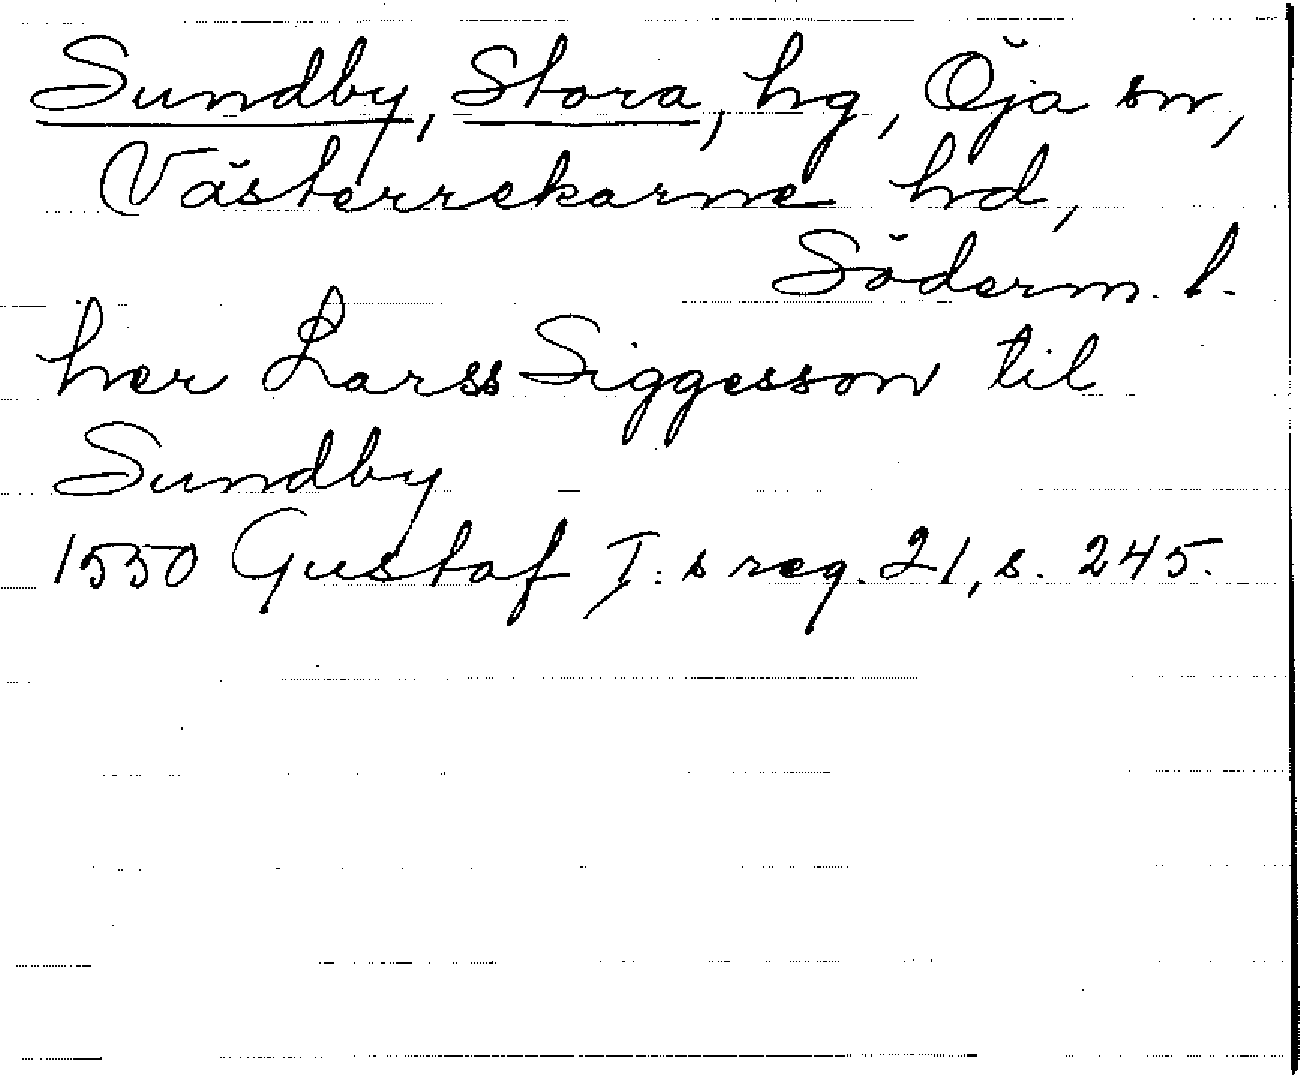 Sundby, Stora, hg, Öja sn,
Västerrekarne hd,
Söderm. l.
her Larss Siggesson til
Sundby
1550 Gustaf I:s reg. 21, s. 245.